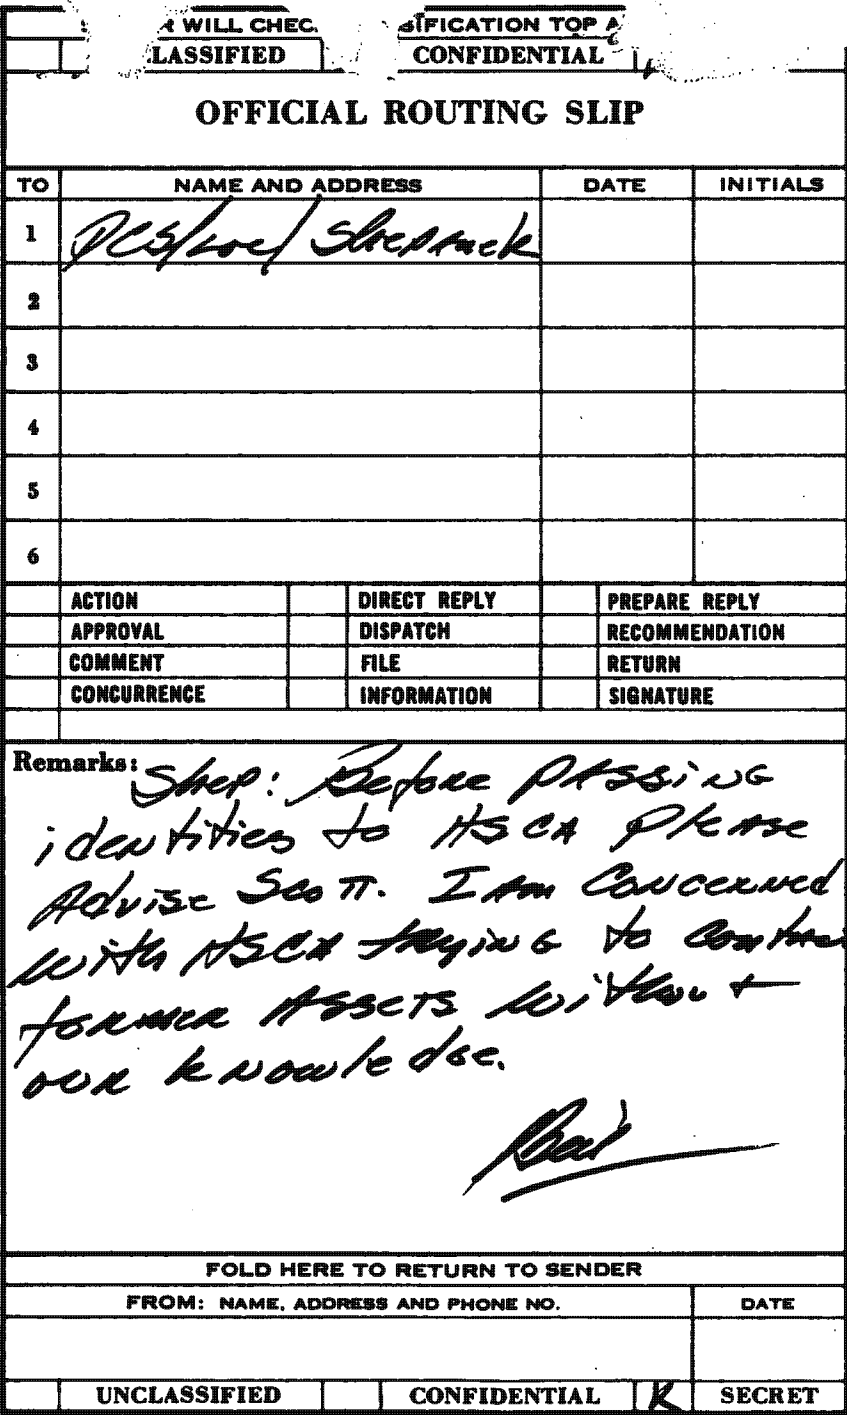 WILL CHEC IFICATION TOP A
LASSIFIED CONFIDENTIAL
OFFICIAL ROUTING SLIP
TO NAME AND ADDRESS DATE INITIALS
1 Shepanek
2
3
4
5
6
ACTION DIRECT REPLY PREPARE REPLY
APPROVAL DISPATCH RECOMMENDATION
COMMENT FILE RETURN
CONCURRENCE INFORMATION SIGNATURE
Remarks: Shep: Before PASSiNG
identities to HSCA PleAse
Advise Scott. I Am Concerned
with HSCA trying to contac
former Assets without
our knowledge.
FOLD HERE TO RETURN TO SENDER
FROM: NAME, ADDRESS AND PHONE NO. DATE
UNCLASSIFIED CONFIDENTIAL SECRET